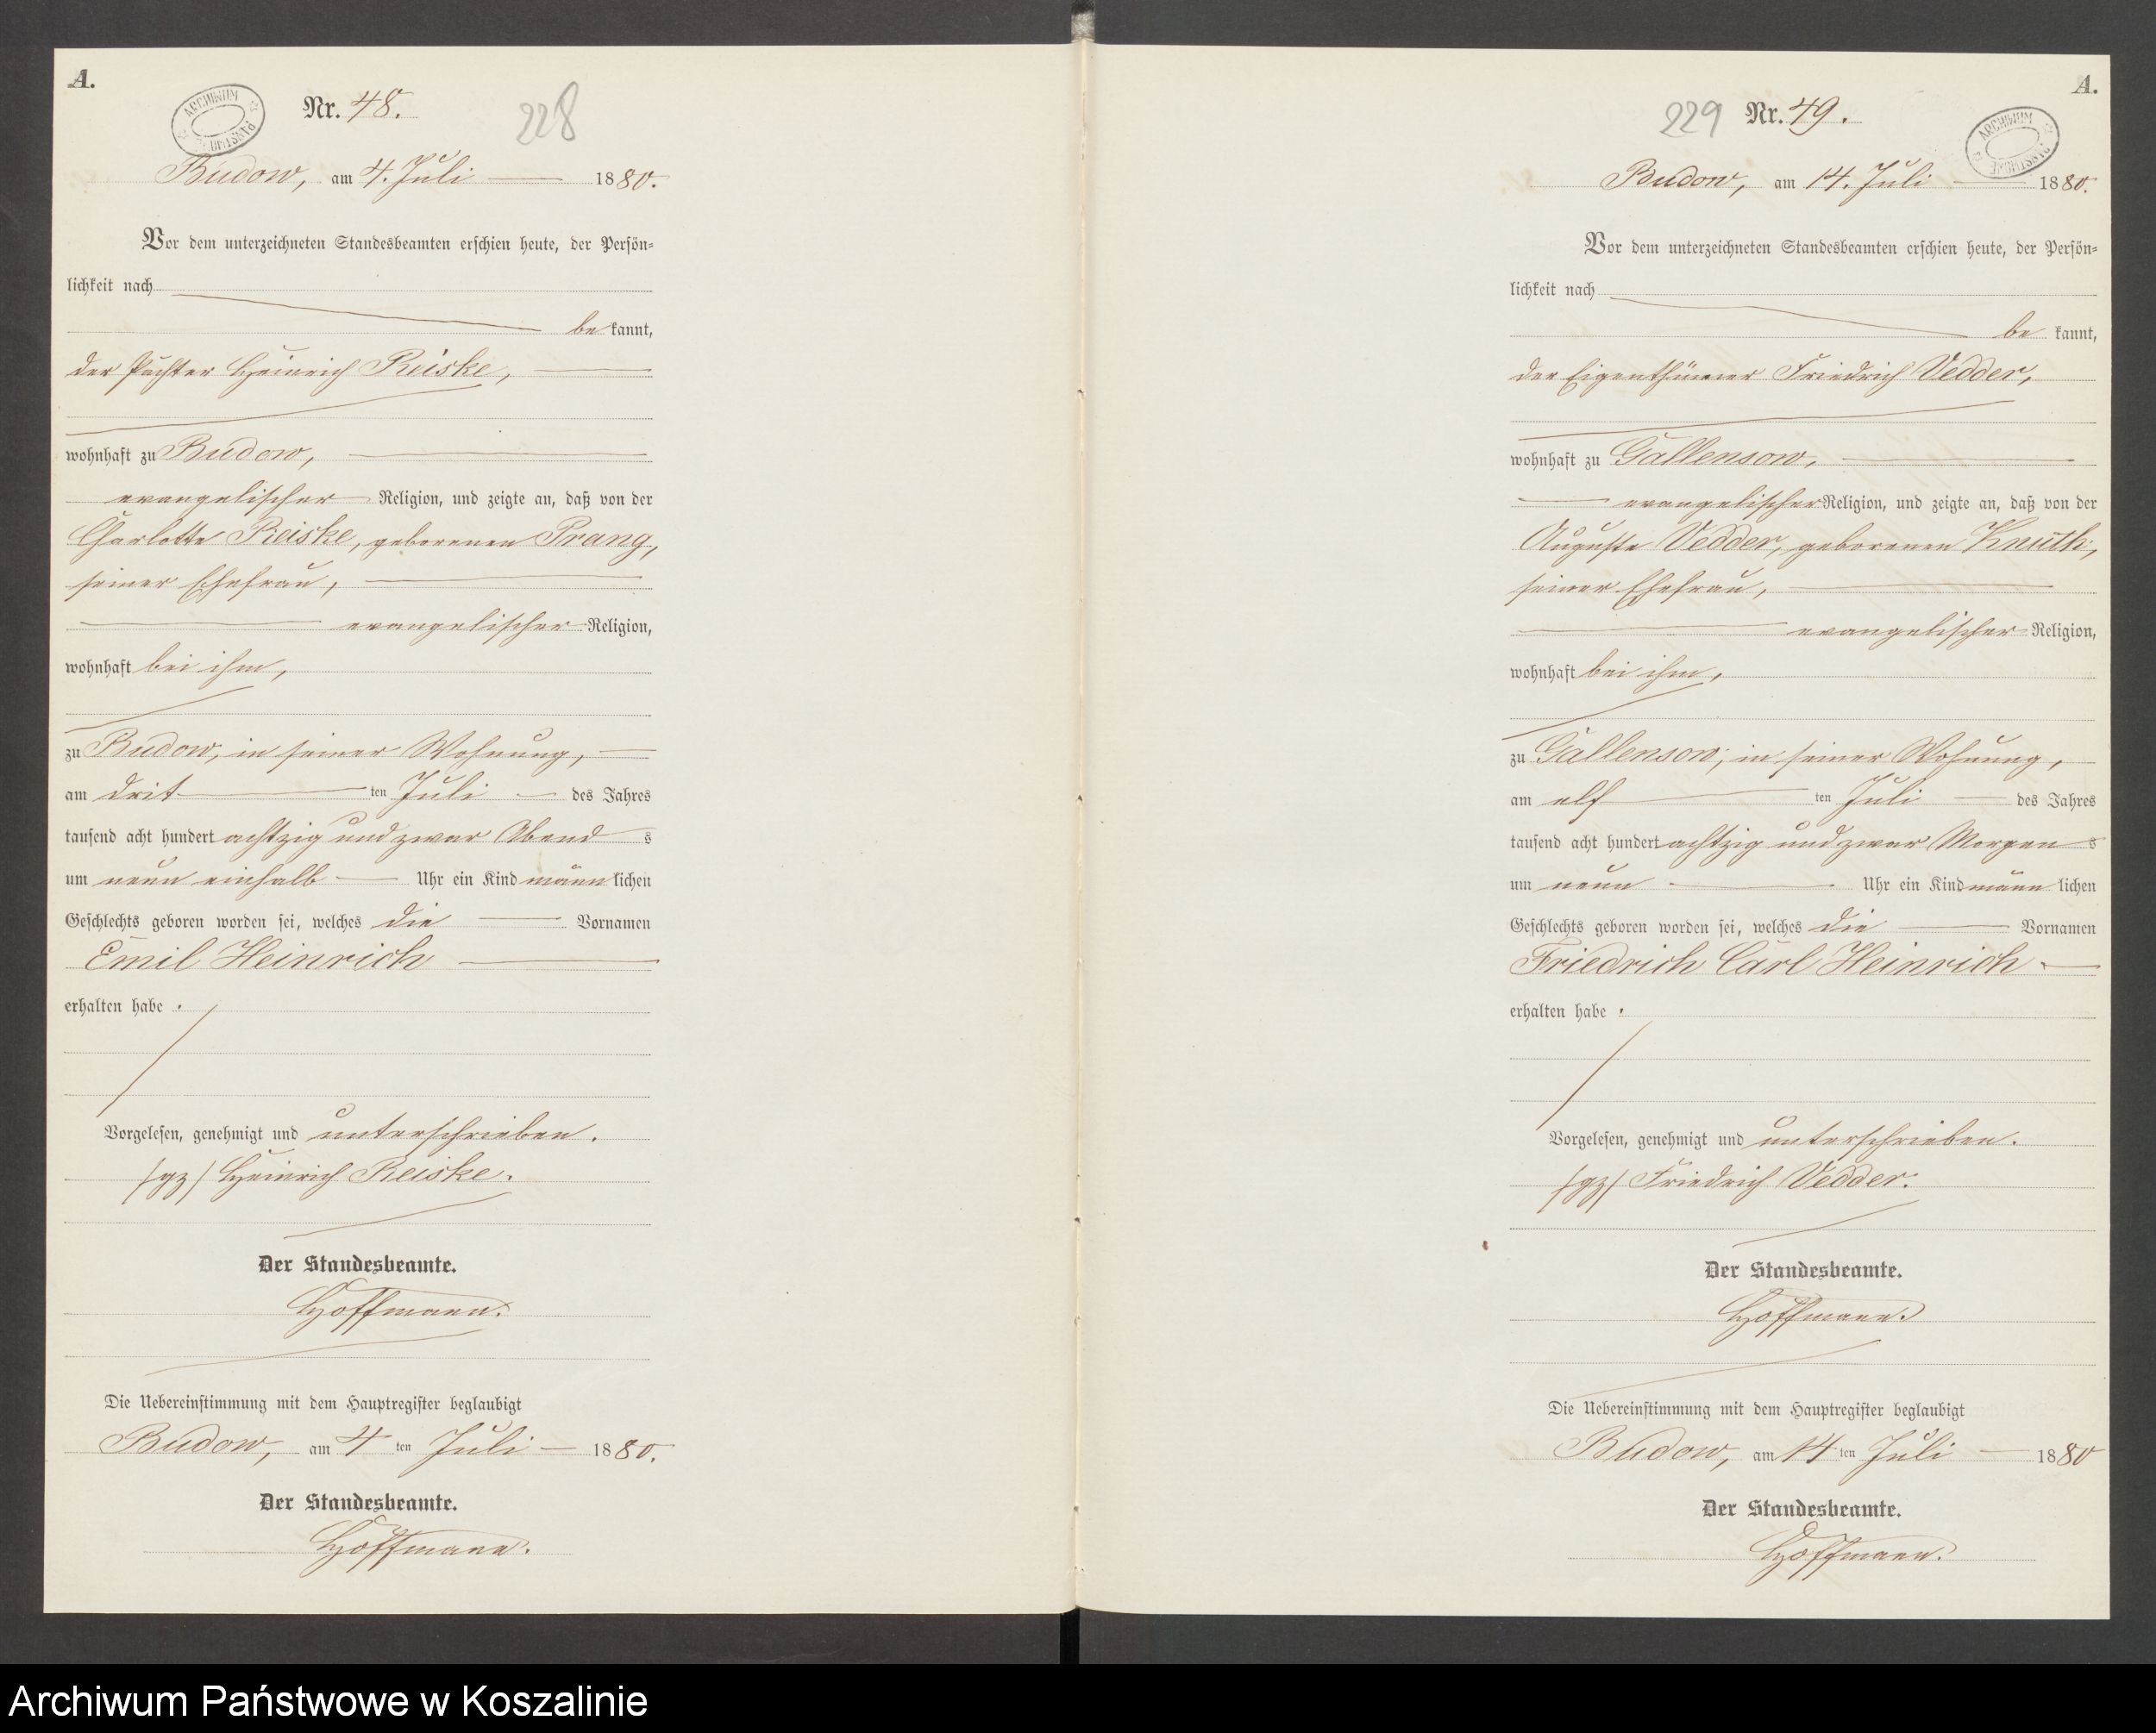 A.
ARCHIWUM PAŃSTWOWE
Nr. 48.
228
Budow, am 4. Juli 1880.
Vor dem unterzeichneten Standesbeamten erschien heute, der Persön=
lichkeit nach
be kannt,
der Pächter Heinrich Reiske,
wohnhaft zu Budow,
evangelischer Religion, und zeigte an, daß von der
Charlotte Reiske, geborenen Prang,
seiner Ehefrau,
evangelischer Religion,
wohnhaft bei ihm,
zu Budow, in seiner Wohnung,
am drit ten Juli des Jahres
tausend acht hundert achtzig und zwar Abend s
um neun einhalb Uhr ein Kind männ lichen
Geschlechts geboren worden sei, welches die Vornamen
Emil Heinrich
erhalten habe.
Vorgelesen, genehmigt und unterschrieben.
/gz/ Heinrich Reiske.
Der Standesbeamte.
Hoffmann.
Die Uebereinstimmung mit dem Hauptregister beglaubigt
Budow, am 4 ten Juli 1880.
Der Standesbeamte.
Hoffmann.
A.
229
Nr. 49.
ARCHIWUM PAŃSTWOWE
Budow, am 14. Juli 1880.
Vor dem unterzeichneten Standesbeamten erschien heute, der Persön=
lichkeit nach
be kannt,
der Eigenthümer Friedrich Vedder,
wohnhaft zu Gallensow,
evangelischer Religion, und zeigte an, daß von der
Auguste Vedder, geborenen Knuth,
seiner Ehefrau,
evangelischer Religion,
wohnhaft bei ihm,
zu Gallensow, in seiner Wohnung,
am elf ten Juli des Jahres
tausend acht hundert achtzig und zwar Morgen s
um neun Uhr ein Kind männ lichen
Geschlechts geboren worden sei, welches die Vornamen
Friedrich Carl Heinrich
erhalten habe.
Vorgelesen, genehmigt und unterschrieben.
/gz/ Friedrich Vedder.
Der Standesbeamte.
Hoffmann.
Die Uebereinstimmung mit dem Hauptregister beglaubigt
Budow, am 14 ten Juli 1880
Der Standesbeamte.
Hoffmann.
Archiwum Państwowe w Koszalinie